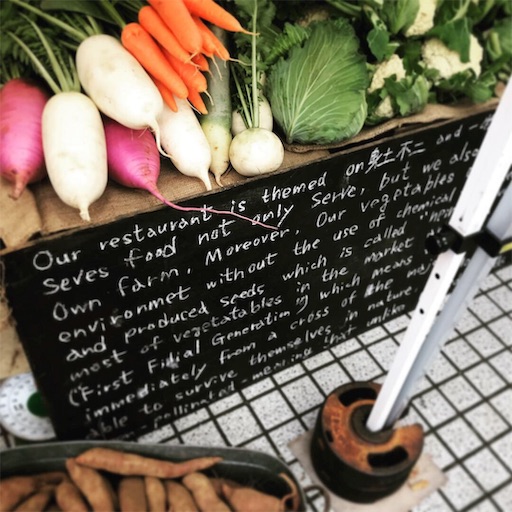 Our restaurant is themed on 身土不二 and
Seves food not only Serve, but we also
Own farm, Moreover, Our vegetables
environmet without the use of chemical
and produced seeds which is called
most of vegetatables in the market
(First Filial Generation) which means
immediately from a cross of the
able to survive themselves in nature.
pollinated - meaning that unlike